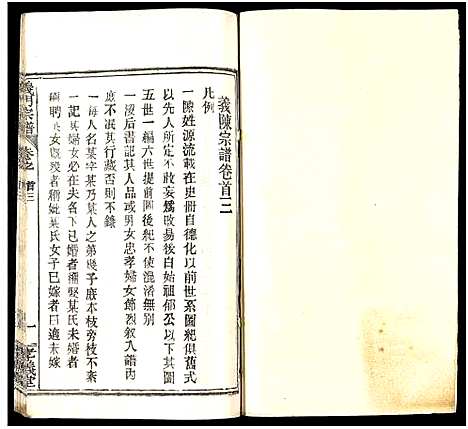 義陳宗譜卷首三
凡例
一陳姓源流載在史冊自德化以前世系圖紀俱舊式
以先人所定不敢妄為改易後自始祖郁公以下其圖
五世一編六世提前圖後紀不使混淆無別
一沒后書譜記其品或男女忠孝婦女節烈敘入譜內
庶不泯其行藏否則不錄
一每人名某字某乃某人之第幾子庶本枝旁枝不紊
一記其婦女必在夫名下已婚者稱娶某氏未婚者
稱聘某女既殁者稱妣某氏女子已嫁者曰適未嫁
義門宗譜
卷之首三
一
義堂